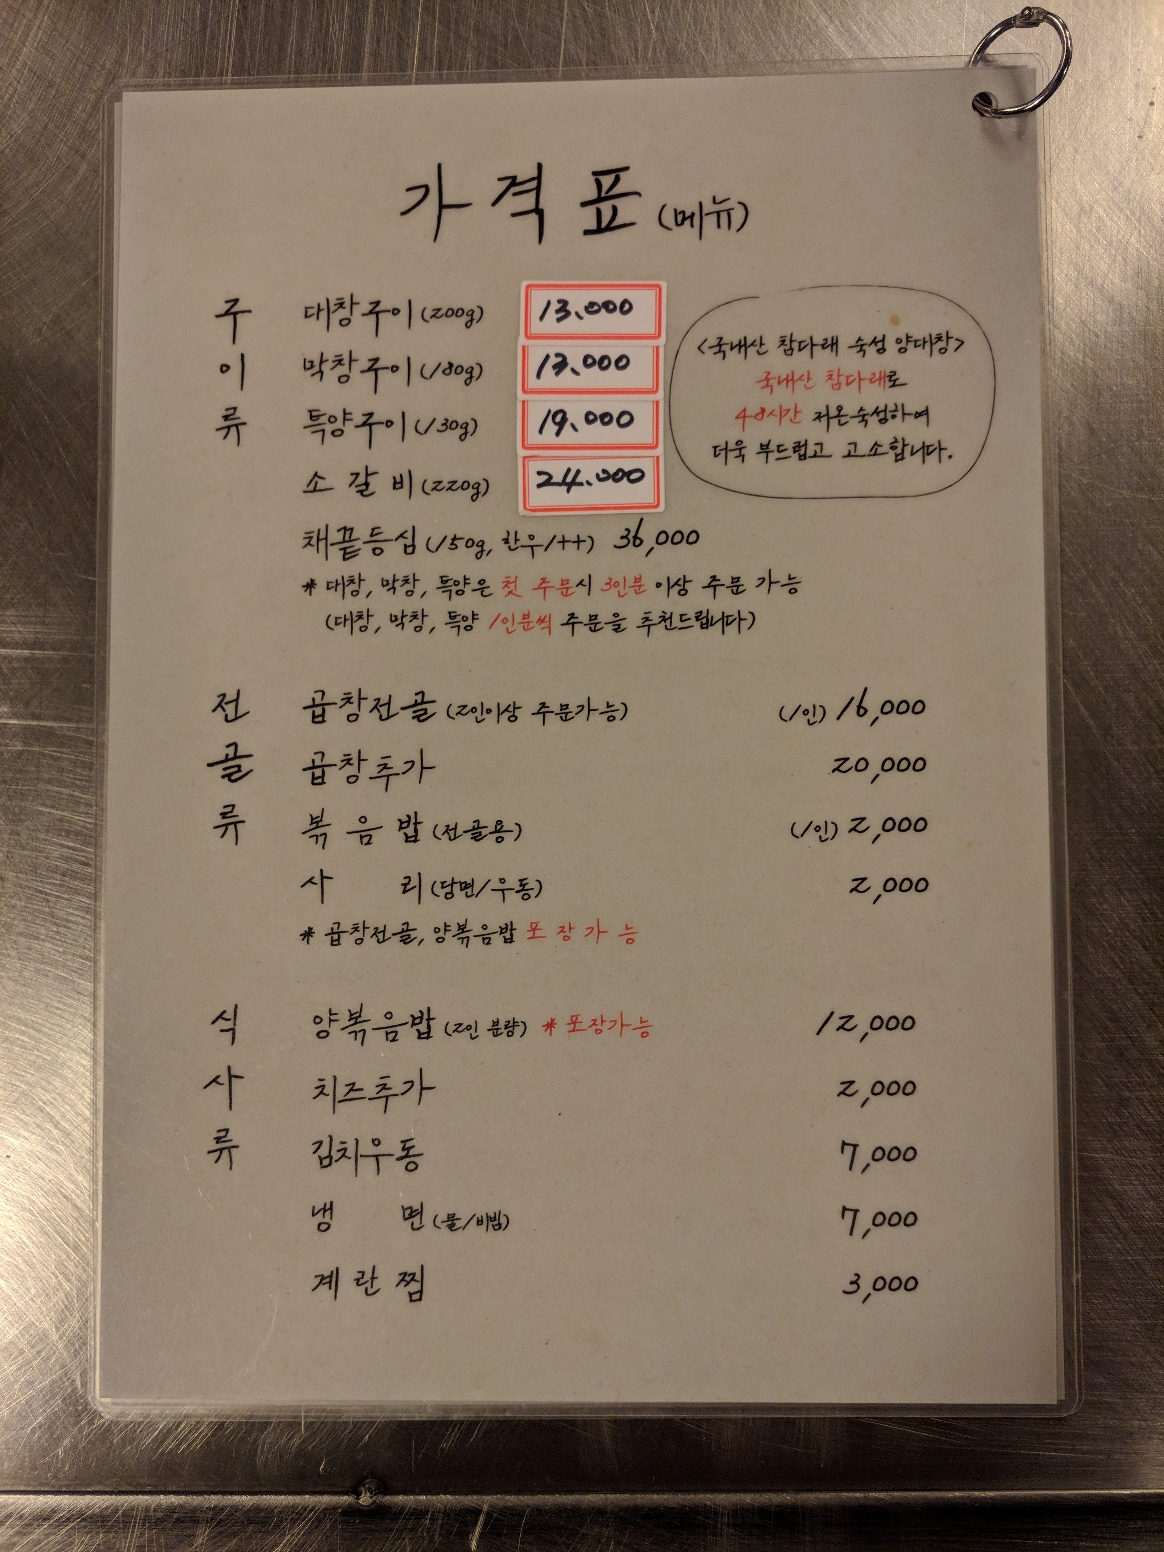 가격표 (메뉴)
구이류
대창구이 (200g) 13.000
막창구이 (180g) 13.000
특양구이 (130g) 19.000
소갈비 (220g) 24.000
채끝등심 (150g, 한우1++) 36,000
* 대창, 막창, 특양은 첫 주문시 3인분 이상 주문 가능
(대창, 막창, 특양 1인분씩 주문을 추천드립니다)
<국내산 참다래 숙성 양대창>
국내산 참다래로
48시간 저온숙성하여
더욱 부드럽고 고소합니다.
전골류
곱창전골 (2인이상 주문가능) (1인) 16,000
곱창추가 20,000
볶음밥 (전골용) (1인) 2,000
사리 (당면/우동) 2,000
* 곱창전골, 양볶음밥 포장가능
식사류
양볶음밥 (2인 분량) * 포장가능 12,000
치즈추가 2,000
김치우동 7,000
냉면 (물/비빔) 7,000
계란찜 3,000